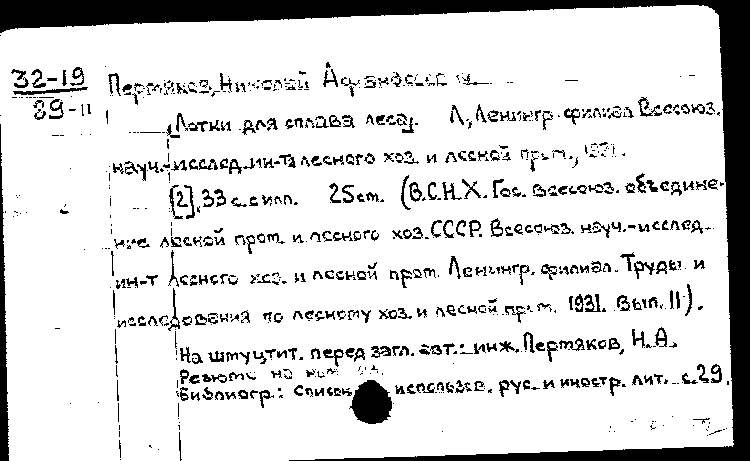 32-19
89-11
Пертяков, Николай Афанасьевич.
Лотки для сплава леса. Л., Ленингр. филиал Всесоюз.
науч.-исслед. ин-та лесного хоз. и лесной пром., 1931.
[2], 33 с. с илл. 25 см. (В.С.Н.Х. Гос. всесоюз. объедине-
ние лесной пром. и лесного хоз. СССР. Всесоюз. науч.-исслед.
ин-т лесного хоз. и лесной пром. Ленингр. филиал. Труды и
исследования по лесному хоз. и лесной пром. 1931. Вып. 11).
На шмуцтит. перед загл. авт.: инж. Пертяков, Н.А.
Резюме на нем. яз.
Библиогр.: Список использов. рус. и иностр. лит. с. 29.